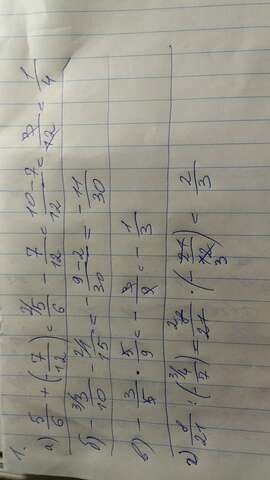 1.
а) 5/6 + (7/12) = 2/5/6 - 7/12 = 10-7/12 = 3/12 = 1/4
б) - 3/3/10 - 2/1/15 = - 9-2/30 = - 11/30
в) - 3/5 · 5/9 = - 3/9 = - 1/3
г) 8/21 : (3/4/7) = 2/3